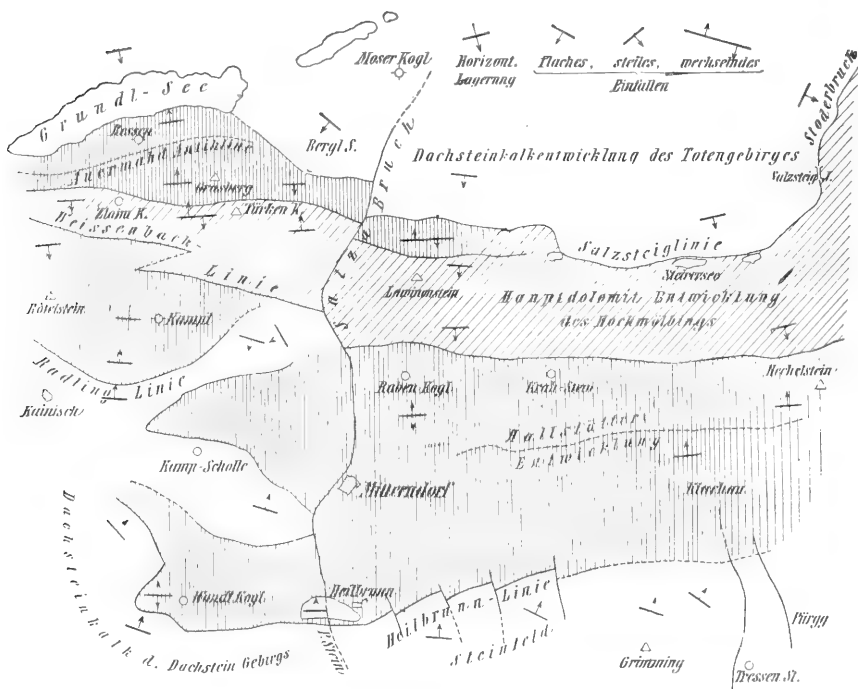 Moser Kogl
Horizont. Lagerung
flaches, steiles, wechselndes
Einfallen
Stoderbruch
Grundl-See
Ressen
Auermahd Antikline
Grasberg
Bergl S.
Salza Bruch
Dachsteinkalkentwicklung des Totengebirges
Salzsteig J.
Zlaim K.
Türken K.
Weissenbach-
Linie
Salzsteiglinie
Steirersee
Lawinenstein
Hauptdolomit Entwicklung
des Hochmölbings
Rötelstein
Kampl
Radling Linie
Kainisch
Hechelstein
Raben Kogl
Krah-Stein
Hallstätter
Entwicklung
Kamp-Scholle
Mitterndorf
Klachau
Dachsteinkalk d. Dachstein Gebirgs
Wandl Kogl
Heilbrunn
P. Stein
Heilbrunn-Linie
Steinfeld
Grimming
Pürgg
Tressen St.